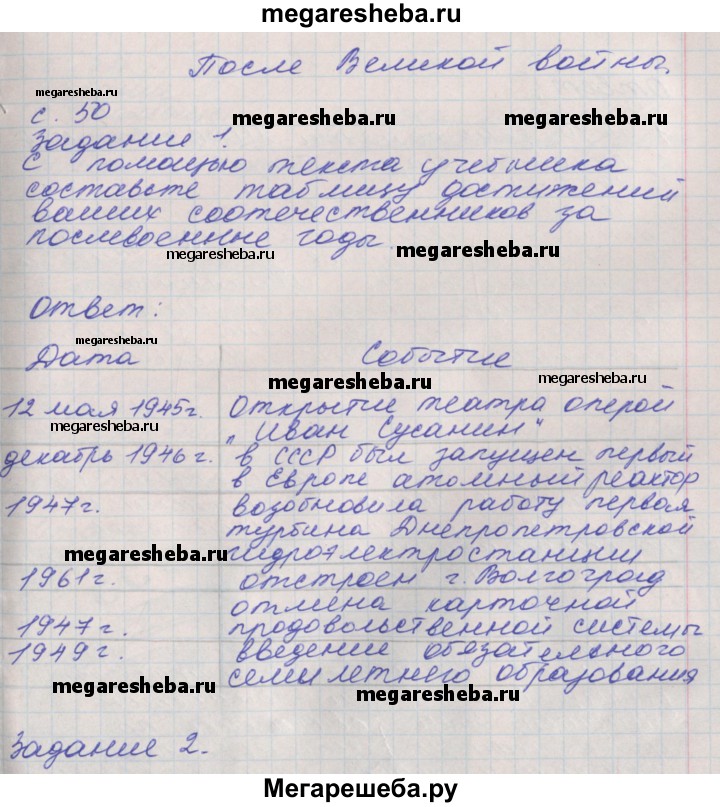 megaresheba.ru
После Великой войны.
megaresheba.ru
с. 50
megaresheba.ru
megaresheba.ru
Задание 1.
С помощью текста учебника
составьте таблицу достижений
ваших соотечественников за
послевоенные годы
megaresheba.ru
megaresheba.ru
Ответ:
megaresheba.ru
Дата Событие
megaresheba.ru
megaresheba.ru
12 мая 1945г. Открытие театра оперой
„Иван Сусанин"
megaresheba.ru
декабрь 1946г. в СССР был запущен первый
в Европе атомный реактор
1947г. возобновила работу первая
турбина Днепропетровской
megaresheba.ru
гидроэлектростанции
1961г. отстроен г. Волгоград
отмена карточной
1947г. продовольственной системы
1949г. введение обязательного
семилетнего образования
megaresheba.ru
megaresheba.ru
Задание 2.
megaresheba.ru
Мегарешеба.ру